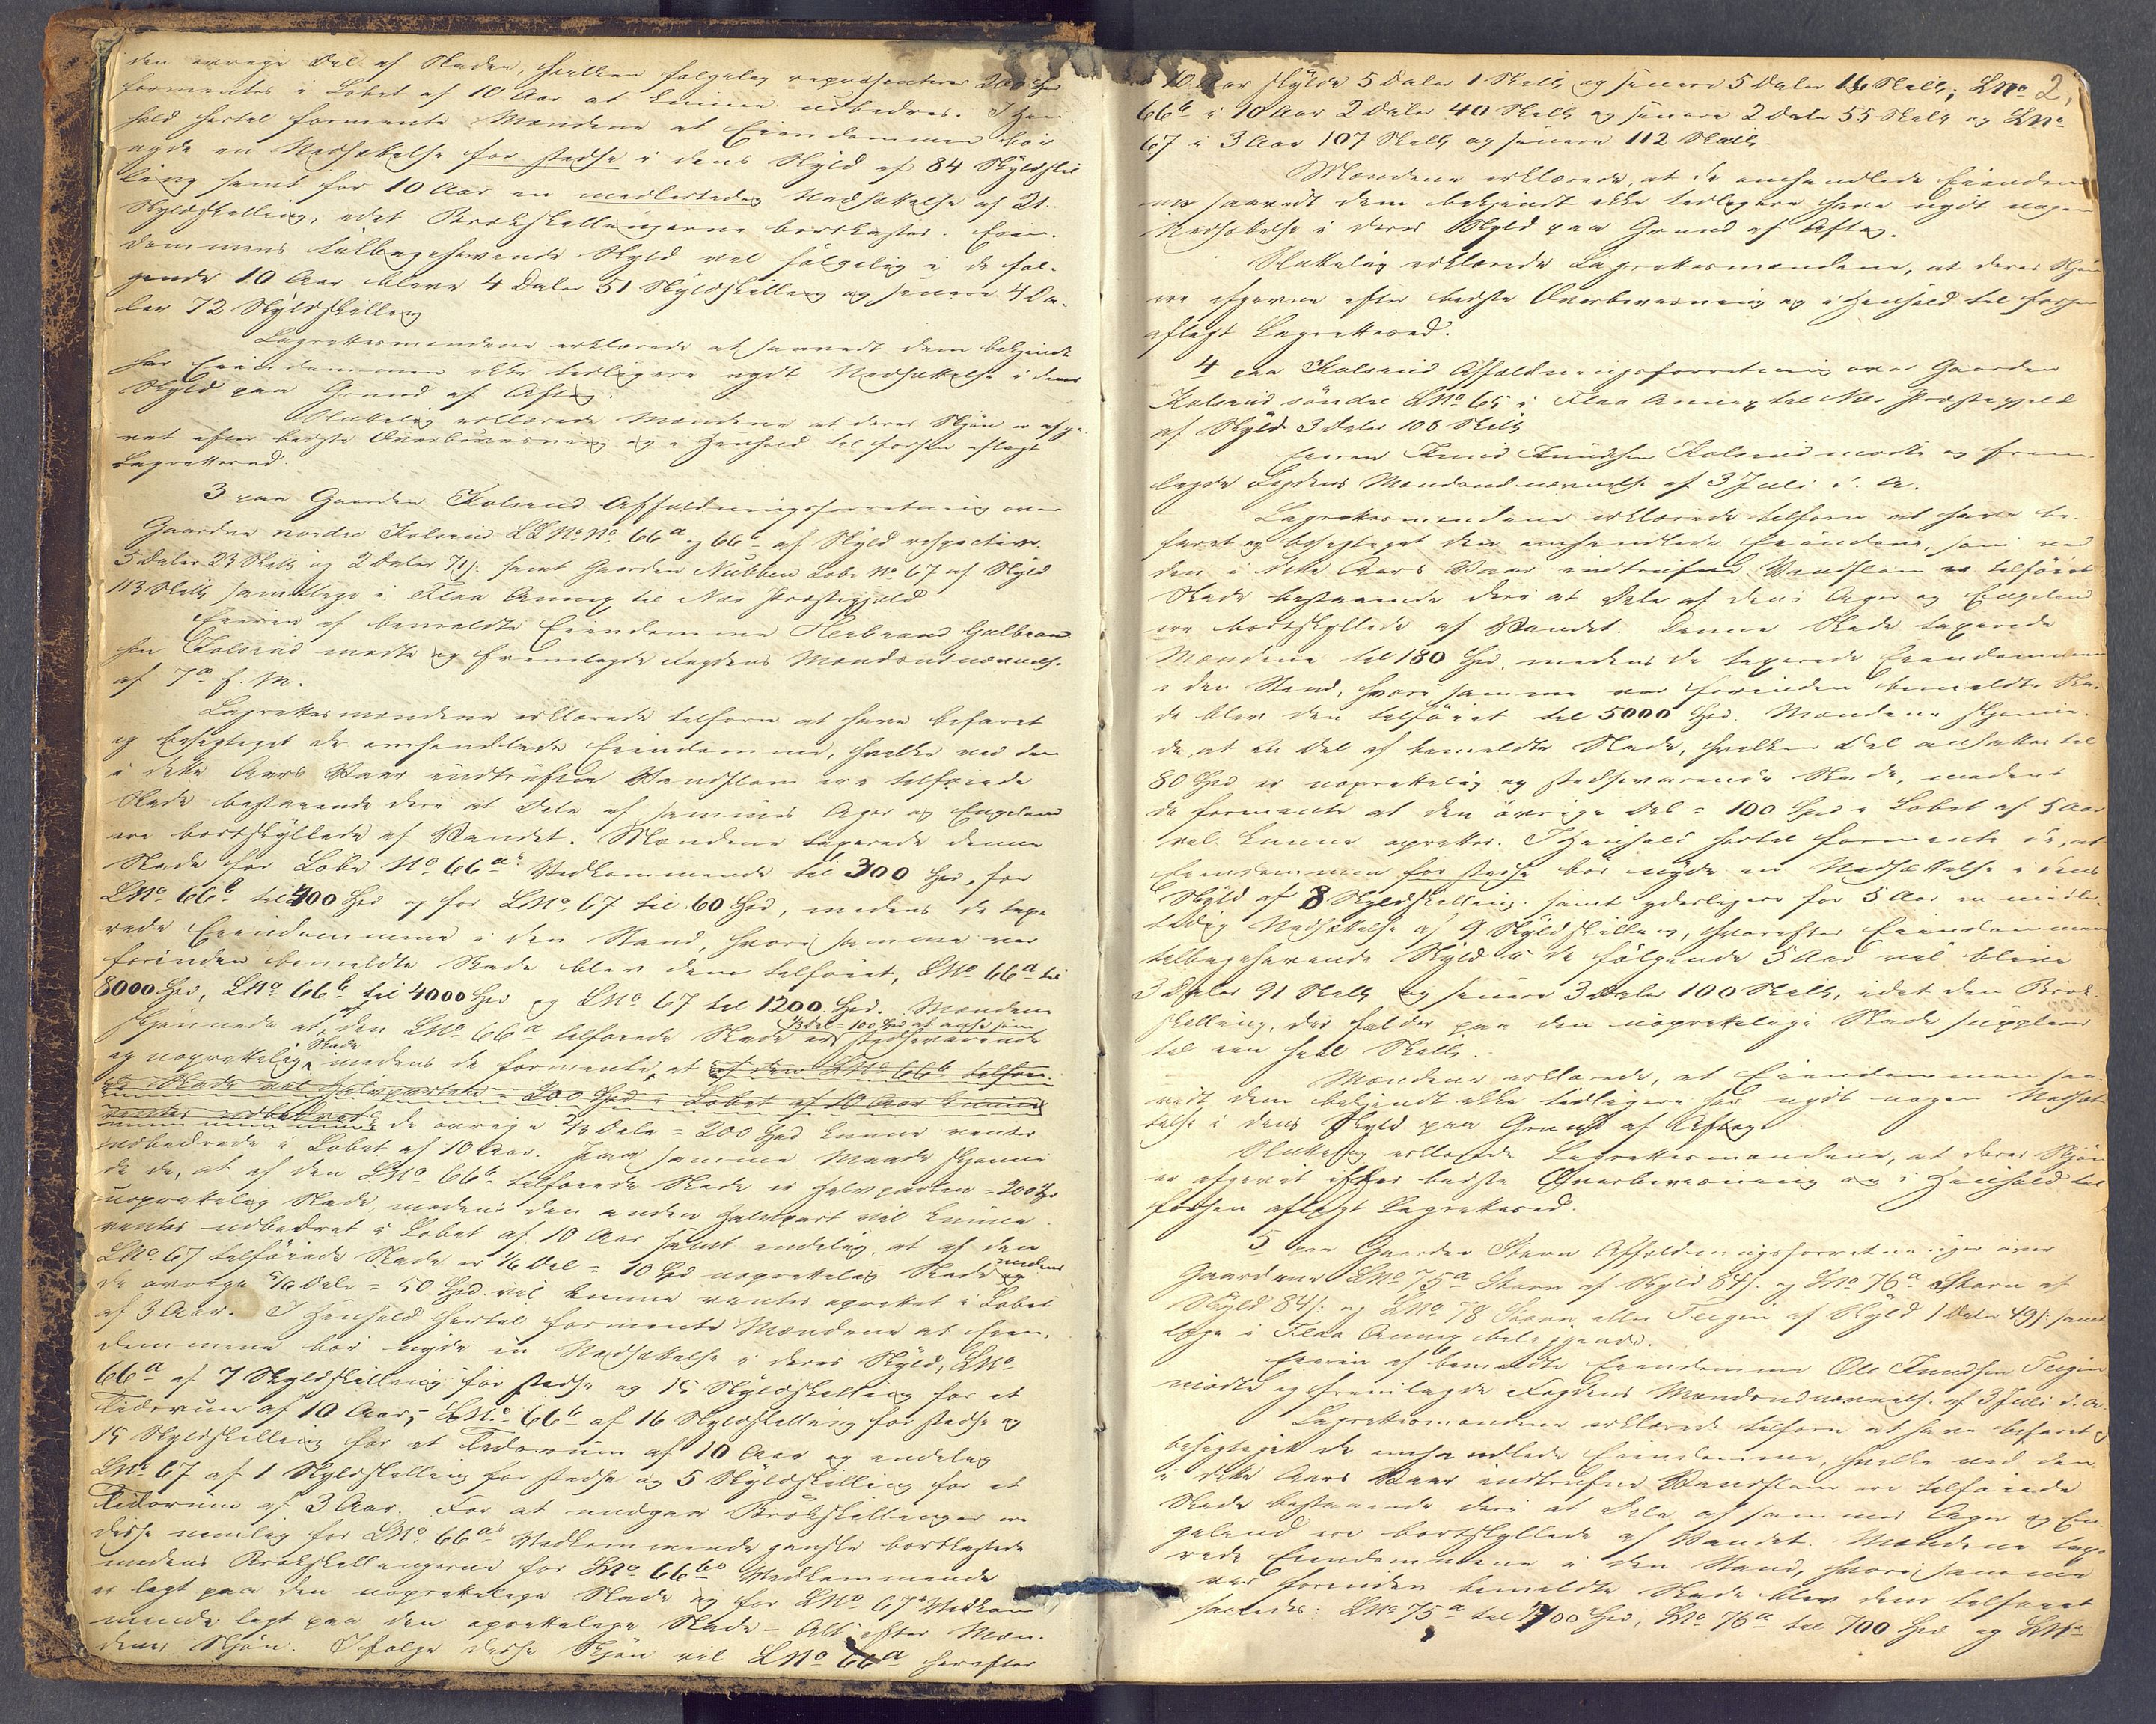 den øvrige Del af Skaden, hvilken følgelig repræsenterer 200 Spd
formentes i Løbet af 10 Aar at kunne udbedres. I Hen-
hold hertil formente Mændene at Eiendommen bør
nyde en Nedsættelse for stedse i dens Skyld af 34 Skyldskil-
ling samt for 10 Aar en midlertidig Nedsættelse af 21
Skyldskilling, idet Brøkskillingerne bortkastes. Eien-
dommens tilbageværende Skyld vil følgelig i de føl-
gende 10 Aar blive 4 Daler 51 Skyldskilling og senere 4 Da-
ler 72 Skyldskilling
Lagrettesmændene erklærede at saavidt dem bekjendt
har Eiendommen ikke tidligere nydt Nedsættelse i dens
Skyld paa Grund af Aftag.
Sluttelig erklærede Mændene at deres Skjøn er afgi-
vet efter bedste Overbevisning og i Henhold til forhen aflagt
Lagretteed.
3 paa Gaarden Kolsrud Affældningsforretning over
Gaarden nordre Kolsrud LL No No 66a og 66b af Skyld respective
5 Daler 23 Skill og 2 Daler 71 s: samt Gaarden Nubben Løbe No 67 af Skyld
113 Skill samtlige i Flaa Annex til Næs Præstegjeld
Eieren af bemeldte Eiendomme Herbrand Gulbrand-
sen Kolsrud mødte og fremlagde Fogdens Mandsudnævnelse
af 7de f. M.
Lagrettesmændene erklærede tilforn at have befaret
og besigtiget de omhandlede Eiendomme, hvilke ved den
i dette Aars Vaar indtrufne Vandflom ere tilføiede
Skade bestaaende deri at Dele af sammes Ager og Engeland
ere bortskyllede af Vandet. Mændene taxerede denne
Skade for Løbe No 66a's Vedkommende til 300 Spd, for
LNo 66b til 400 Spd og for LNo 67 til 60 Spd, medens de taxe-
rede Eiendommene i den Stand, hvori samme var
forinden bemeldte Skade blev dem tilføiet, LNo 66a til
8000 Spd, LNo 66b til 4000 Spd og LNo 67 til 1200 Spd. Mændene
skjønnede at af den LNo 66a tilføiede Skade er 1/3 Del = 100 Spd at anse som stedsevarende
og uoprettelig Skade, medens de formente, at af den LNo 66b tilføie-
de Skade vil Halvparten = 200 Spd i Løbet af 10 Aar kunne
ventes udbedret de øvrige 2/3 Dele = 200 Spd kunne ventes
udbedrede i Løbet af 10 Aar. Paa samme Maade skjønne-
de de, at af den LNo 66b tilføiede Skade er Halvparten = 200 Spd
uoprettelig Skade, medens den anden Halvpart vil kunne
ventes udbedret i Løbet af 10 Aar samt endelig, at af den
LNo 67 tilføiede Skade er 1/6 Del = 10 Spd uoprettelig Skade medens
de øvrige 5/6 Dele = 50 Spd. vil kunne ventes oprettet i Løbet
af 3 Aar. I Henhold hertil formente Mændene at Eien-
dommene bør nyde en Nedsættelse i deres Skyld, LNo
66a af 7 Skyldskilling for stedse og 15 Skyldskilling for et
Tidsrum af 10 Aar, LNo 66b af 16 Skyldskilling for stedse og
15 Skyldskilling for et Tidsrum af 10 Aar og endelig
LNo 67 af 1 Skyldskilling for stedse og 5 Skyldskilling for et
Tidsrum af 3 Aar. For at undgaa Brøkskillinger ere
disse nemlig for LNo 66a's Vedkommende ganske bortkastede
medens Brøkskillingerne for LNo 66b's Vedkommende
er lagt paa den uoprettelige Skade og for LNo 67's Vedkom-
mende lagt paa den oprettelige Skade – Alt efter Mæn-
denes Skjøn. Ifølge dette Skjøn vil LNo 66a herefter
2.
i 10 Aar skylde 5 Daler 1 Skill og senere 5 Daler 16 Skill; LNo
66b i 10 Aar 2 Daler 40 Skill og senere 2 Daler 55 Skill og LNo
67 i 3 Aar 107 Skill og senere 112 Skill.
Mændene erklærede, at de omhandlede Eiendom-
me saavidt dem bekjendt ikke tidligere have nydt nogen
Nedsættelse i deres Skyld paa Grund af Aftag.
Sluttelig erklærede Lagrettesmændene, at deres Skjøn
ere afgivne efter bedste Overbevisning og i Henhold til forhen
aflagt Lagretteed.
4 paa Kolsrud Affældningsforretning over Gaarden
Kolsrud søndre LNo 65 i Flaa Annex til Næs Præstegjeld
af Skyld 3 Daler 108 Skill
Eieren Knud Knudsen Kolsrud mødte og frem-
lagde Fogdens Mandsudnævnelse af 3 Juli d. A.
Lagrettesmændene erklærede tilforn at have be-
faret og besigtiget den omhandlede Eiendom, som ved
den i dette Aars Vaar indtrufne Vandflom er tilføiet
Skade bestaaende deri at Dele af dens Ager og Engeland
ere bortskyllede af Vandet. Denne Skade taxerede
Mændene til 180 Spd. medens de taxerede Eiendommen
i den Stand, hvori samme var forinden bemeldte Ska-
de blev den tilføiet til 5000 Spd. Mændene skjønne-
de, at en Del af bemeldte Skade, hvilken Del ansættes til
80 Spd er uoprettelig og stedsevarende Skade, medens
de formente at den øvrige Del = 100 Spd i Løbet af 5 Aar
vil kunne oprettes. I Henhold hertil formente de, at
Eiendommen for stedse bør nyde en Nedsættelse i dens
Skyld af 8 Skyldskilling samt yderligere for 5 Aar en midler-
tidig Nedsættelse af 9 Skyldskilling, hvorefter Eiendommens
tilbageværende Skyld i de følgende 5 Aar vil blive
3 Daler 91 Skill og senere 3 Daler 100 Skill, idet den Brøk-
skilling, der falder paa den uoprettelige Skade suppleres
til een heel Skill.
Mændene erklærede, at Eiendommen saa-
vidt dem bekjendt ikke tidligere har nydt nogen Nedsæt-
telse i dens Skyld paa Grund af Aftag
Sluttelig erklærede Lagrettesmændene, at deres Skjøn
er afgivet efter bedste Overbevisning og i Henhold til
forhen aflagt Lagretteed.
5 paa Gaarden Stavn Affældningsforretninger over
Gaardene LNo 75a Stavn af Skyld 84 s. og LNo 76a Stavn af
Skyld 84 s: og LNo 78 Stavn eller Teigen af Skyld 1 Daler 49 s: samt-
lige i Flaa Annex beliggende.
Eieren af bemeldte Eiendomme Ole Knudsen Teigen
mødte og fremlagde Fogdens Mandsudnævnelse af 3 Juli d. A.
Lagrettesmændene erklærede tilforn at have befaret og
besigtiget de omhandlede Eiendomme, hvilke ved den
i dette Aars Vaar indtrufne Vandflom ere tilføiede
Skade bestaaende deri at Dele af sammes Ager og En-
geland ere bortskyllede af Vandet. Mændene taxe-
rede Eiendommene i den Stand, hvori samme
var forinden bemeldte Skade blev dem tilføiet
saaledes: LNo 75a til 1700 Spd, LNo 76a til 700 Spd og LNo